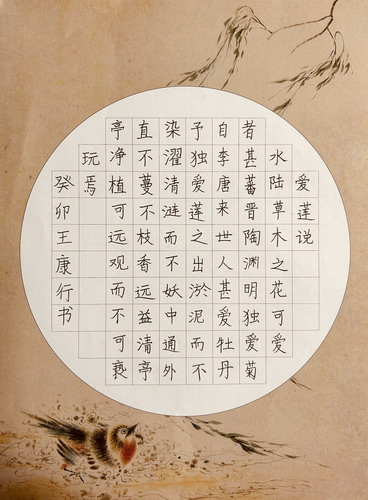 爱莲说
水陆草木之花可爱
者甚蕃晋陶渊明独爱菊
自李唐来世人甚爱牡丹
予独爱莲之出淤泥而不
染濯清涟而不妖中通外
直不蔓不枝香远益清亭
亭净植可远观而不可亵
玩焉
癸卯王康行书